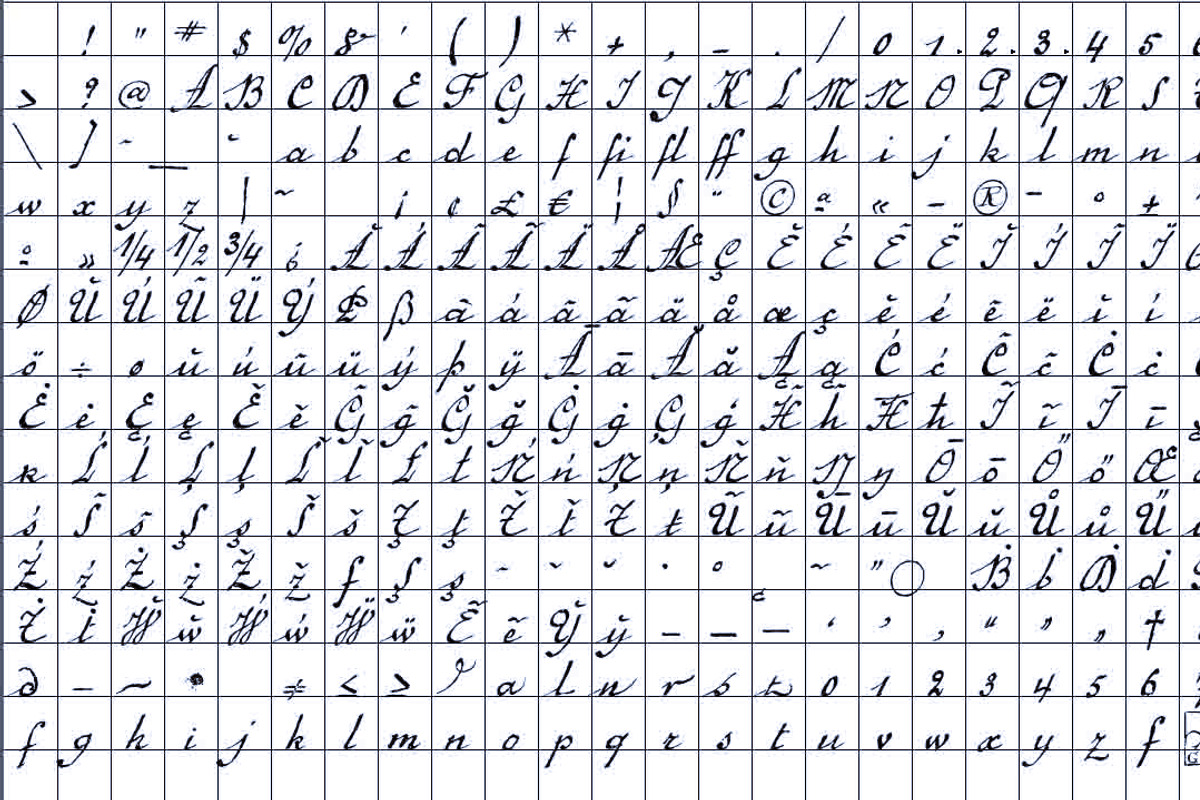 ! " # $ % & ' ( ) * + , - . / 0 1 . 2 . 3 . 4 5
> ? @ A B C D E F G H I J K L M N O P Q R S
\ ] ˆ _ ˘ a b c d e f fi fl ff g h i j k l m n
w x y z | ~ ¡ ¢ £ € ¦ § ¨ © ª « - ® ¯ ° ±
º » 1/4 1/2 3/4 ¿ À Á Â Ã Ä Å Æ Ç È É Ê Ë Ì Í Î Ï
Ø Ù Ú Û Ü Ý Þ ß à á â ã ä å æ ç è é ê ë ì í
ö ÷ ø ù ú û ü ý þ ÿ Ā ā Ă ă Ą ą Ć ć Ĉ ĉ Ċ ċ
Ė ė Ę ę Ě ě Ĝ ĝ Ğ ğ Ġ ġ Ģ ģ Ĥ ĥ Ħ ħ Ĩ ĩ Ī ī
ĸ Ĺ ĺ Ļ ļ Ľ ľ Ł ł Ń ń Ņ ņ Ň ň Ŋ ŋ Ō ō Ő ő Œ
ś Ŝ ŝ Ş ş Š š Ţ ţ Ť ť Ŧ ŧ Ũ ũ Ū ū Ŭ ŭ Ů ů Ű
Ź ź Ż ż Ž ž ƒ Ș ș ˆ ˇ ˘ ˙ ˚ ˛ ˜ ˝ Ḃ ḃ Ḋ ḋ
Ṫ ṫ Ẁ ẁ Ẃ ẃ Ẅ ẅ Ẽ ẽ Ỳ ỳ – — ― ‘ ’ ‚ “ ” „ †
∂ − ∼ • ≠ ≤ ≥ a l n r s t 0 1 2 3 4 5 6
f g h i j k l m n o p q r s t u v w x y z f